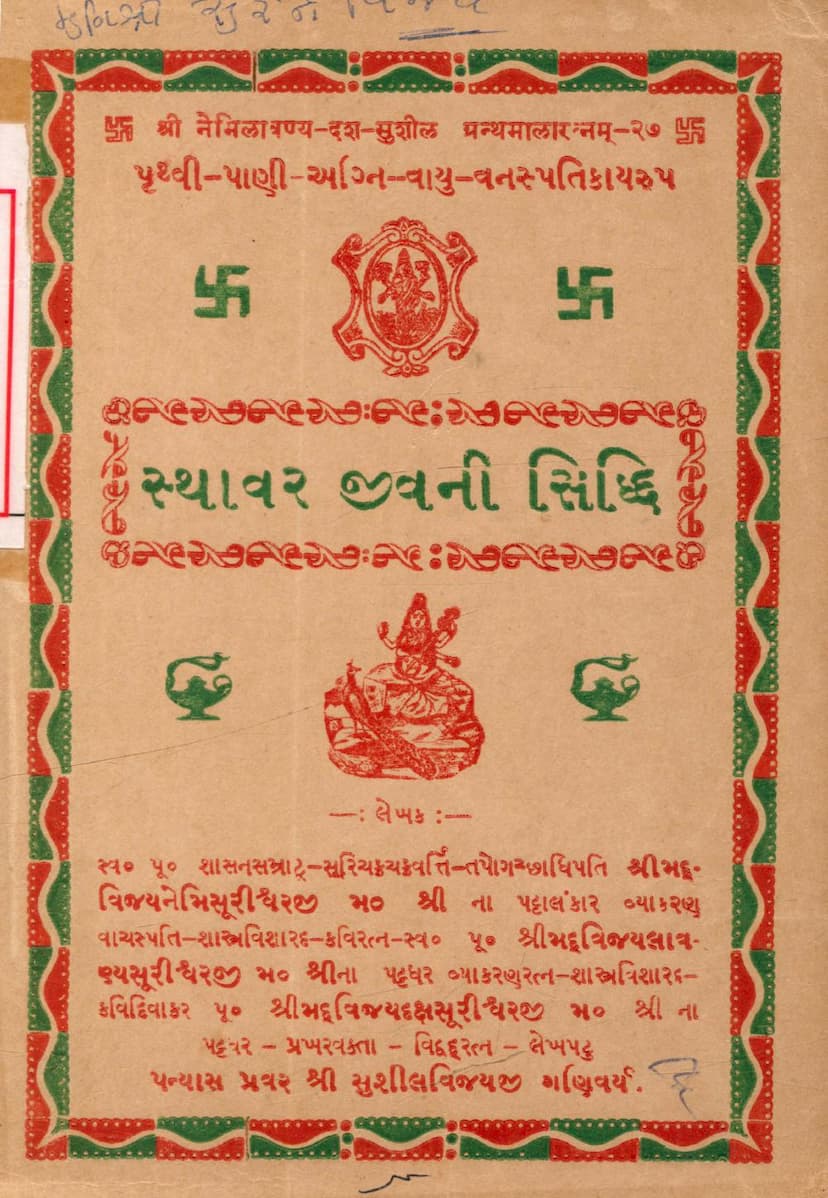 મુનિશ્રી
卐 શ્રી નેમિલાવણ્ય–દક્ષ–સુશીલ ગ્રન્થમાલારત્નમ્–૨૭ 卐
પૃથ્વી–પાણી–અગ્નિ–વાયુ–વનસ્પતિકાયરુપ
સ્થાવર જીવની સિદ્ધિ
—: લેખક :—
સ્વ૦ પૂ૦ શાસનસમ્રાટ્–સૂરિચક્રચક્રવર્ત્તિ–તપોગચ્છાધિપતિ શ્રીમદ્-
વિજયનેમિસૂરીશ્વરજી મ૦ શ્રી ના પટ્ટાલંકાર વ્યાકરણ
વાચસ્પતિ–શાસ્ત્રવિશારદ–કવિરત્ન–સ્વ૦ પૂ૦ શ્રીમદ્વિજયલાવ-
ણ્યસૂરીશ્વરજી મ૦ શ્રીના પટ્ટધર વ્યાકરણરત્ન–શાસ્ત્રવિશારદ–
કવિદિવાકર પૂ૦ શ્રીમદ્વિજયદક્ષસૂરીશ્વરજી મ૦ શ્રી ના
પટ્ટધર – પ્રખરવક્તા – વિદ્વદ્રત્ન – લેખપટુ
પન્યાસ પ્રવર શ્રી સુશીલવિજયજી ગણિવર્ય.